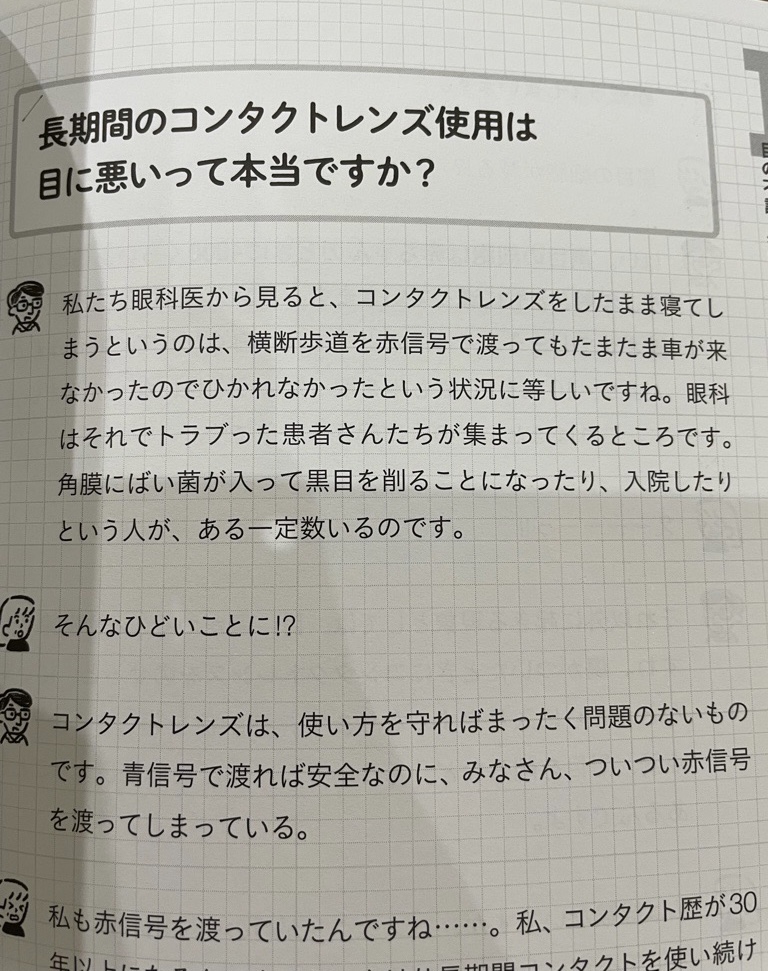 長期間のコンタクトレンズ使用は
目に悪いって本当ですか？
私たち眼科医から見ると、コンタクトレンズをしたまま寝てし
まうというのは、横断歩道を赤信号で渡ってもたまたま車が来
なかったのでひかれなかったという状況に等しいですね。眼科
はそれでトラブった患者さんたちが集まってくるところです。
角膜にばい菌が入って黒目を削ることになったり、入院したり
という人が、ある一定数いるのです。
そんなひどいことに!?
コンタクトレンズは、使い方を守ればまったく問題のないもの
です。青信号で渡れば安全なのに、みなさん、ついつい赤信号
を渡ってしまっている。
私も赤信号を渡っていたんですね……。私、コンタクト歴が30
年以上に
長期間コンタクトを使い続け